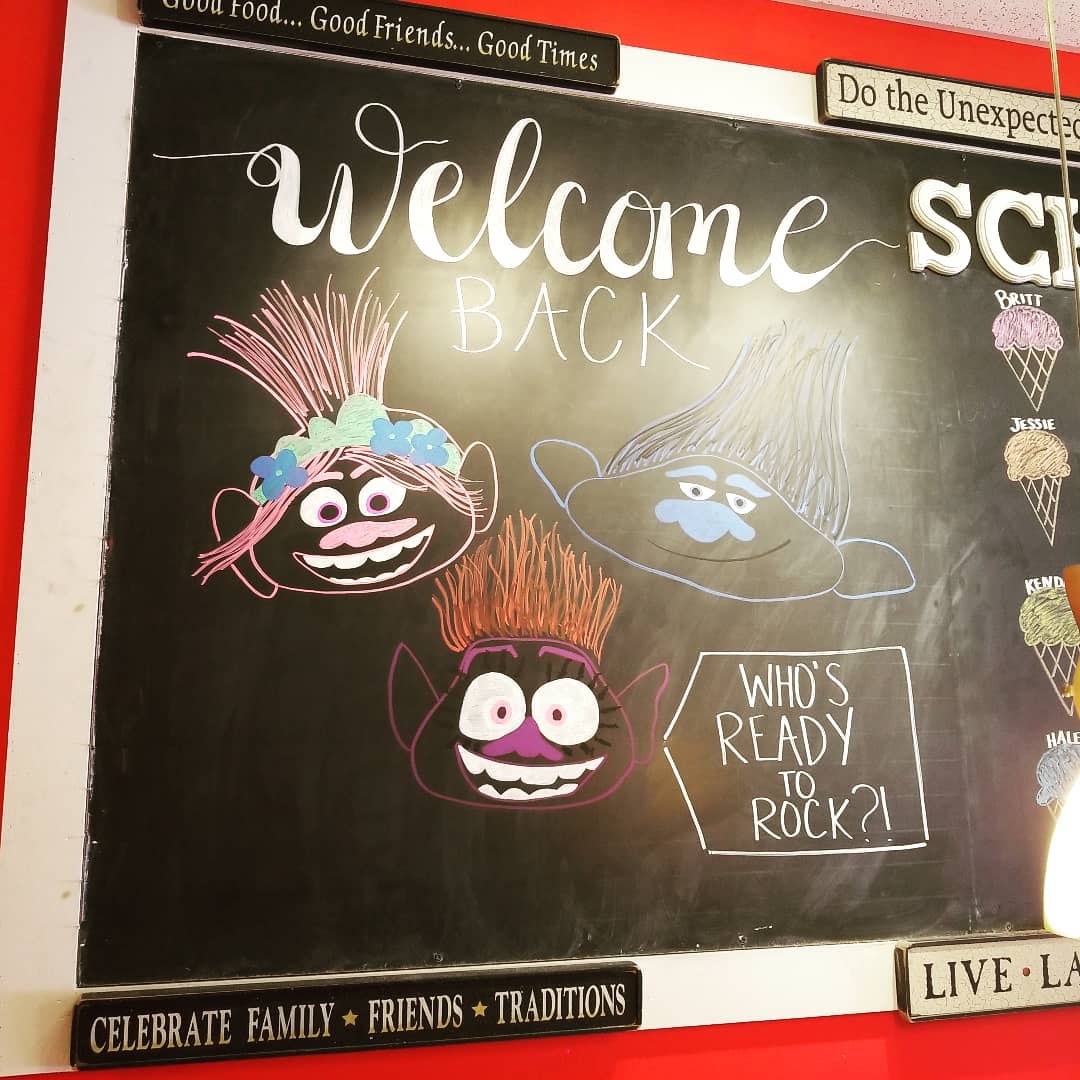 Good Food... Good Friends... Good Times
Do the Unexpected
Welcome
BACK
SC
BRITT
JESSIE
KEND
HALE
WHO'S
READY
TO
ROCK?!
CELEBRATE FAMILY ★ FRIENDS ★ TRADITIONS
LIVE • LA